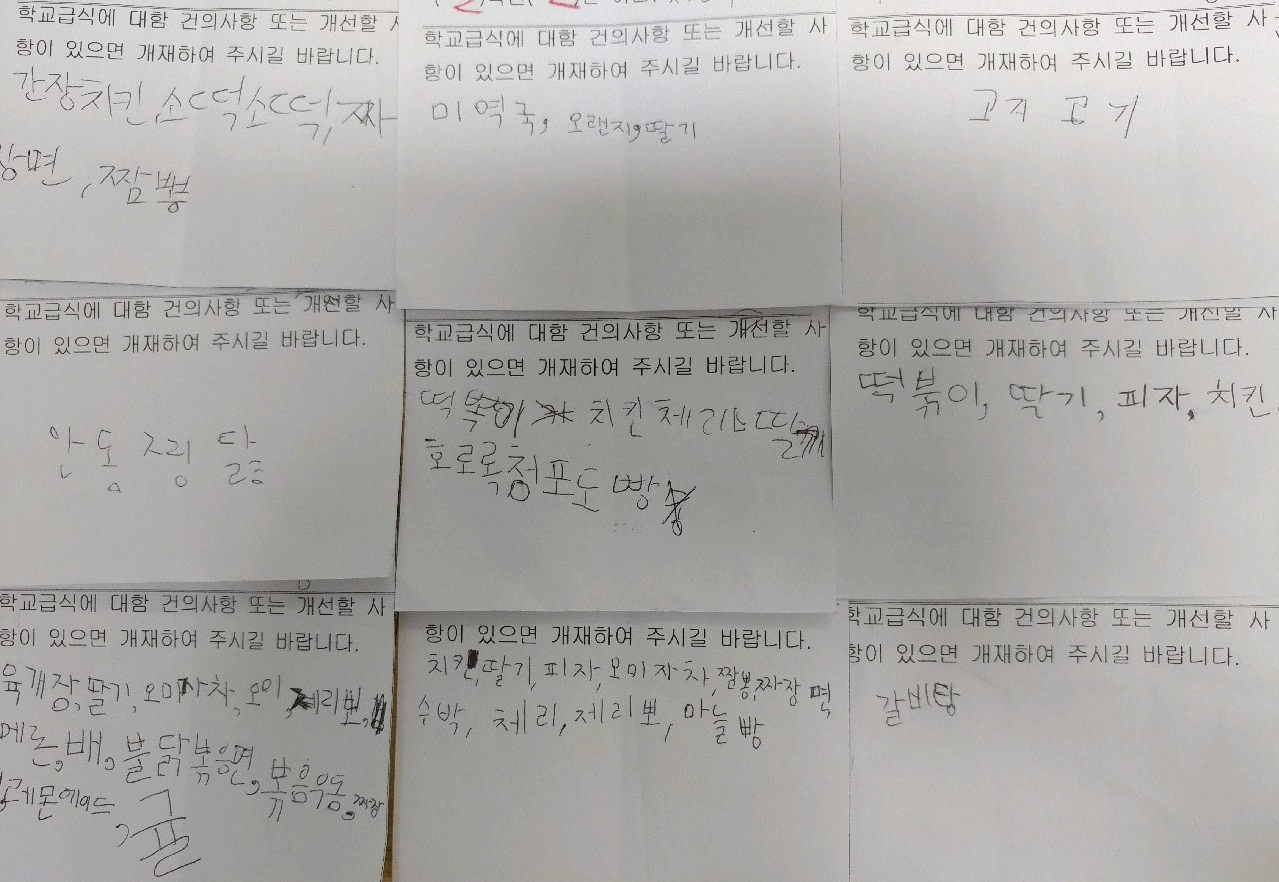 학교급식에 대함 건의사항 또는 개선할 사
항이 있으면 개재하여 주시길 바랍니다.
간장치킨, 소떡소떡, 짜
장면, 짬뽕
학교급식에 대함 건의사항 또는 개선할 사
항이 있으면 개재하여 주시길 바랍니다.
미역국, 오랜지, 딸기
학교급식에 대함 건의사항 또는 개선할 사
항이 있으면 개재하여 주시길 바랍니다.
고기
학교급식에 대함 건의사항 또는 개선할 사
항이 있으면 개재하여 주시길 바랍니다.
안동
학교급식에 대함 건의사항 또는 개선할 사
항이 있으면 개재하여 주시길 바랍니다.
치킨 체리
호로록 청포도 빵
학교급식에 대함 건의사항 또는 개선할 사
항이 있으면 개재하여 주시길 바랍니다.
떡볶이, 딸기, 피자, 치킨
학교급식에 대함 건의사항 또는 개선할 사
항이 있으면 개재하여 주시길 바랍니다.
육개장, 딸기, 오미자차, 오이, 제리뽀,
메론, 배, 불닭볶음면, 볶음우동, 짜장
레몬에이드, 귤
항이 있으면 개재하여 주시길 바랍니다.
치킨, 딸기, 피자, 오미자차, 짬뽕, 짜장면
수박, 체리, 제리뽀, 마늘빵
학교급식에 대함 건의사항 또는 개선할 사
항이 있으면 개재하여 주시길 바랍니다.
갈비탕